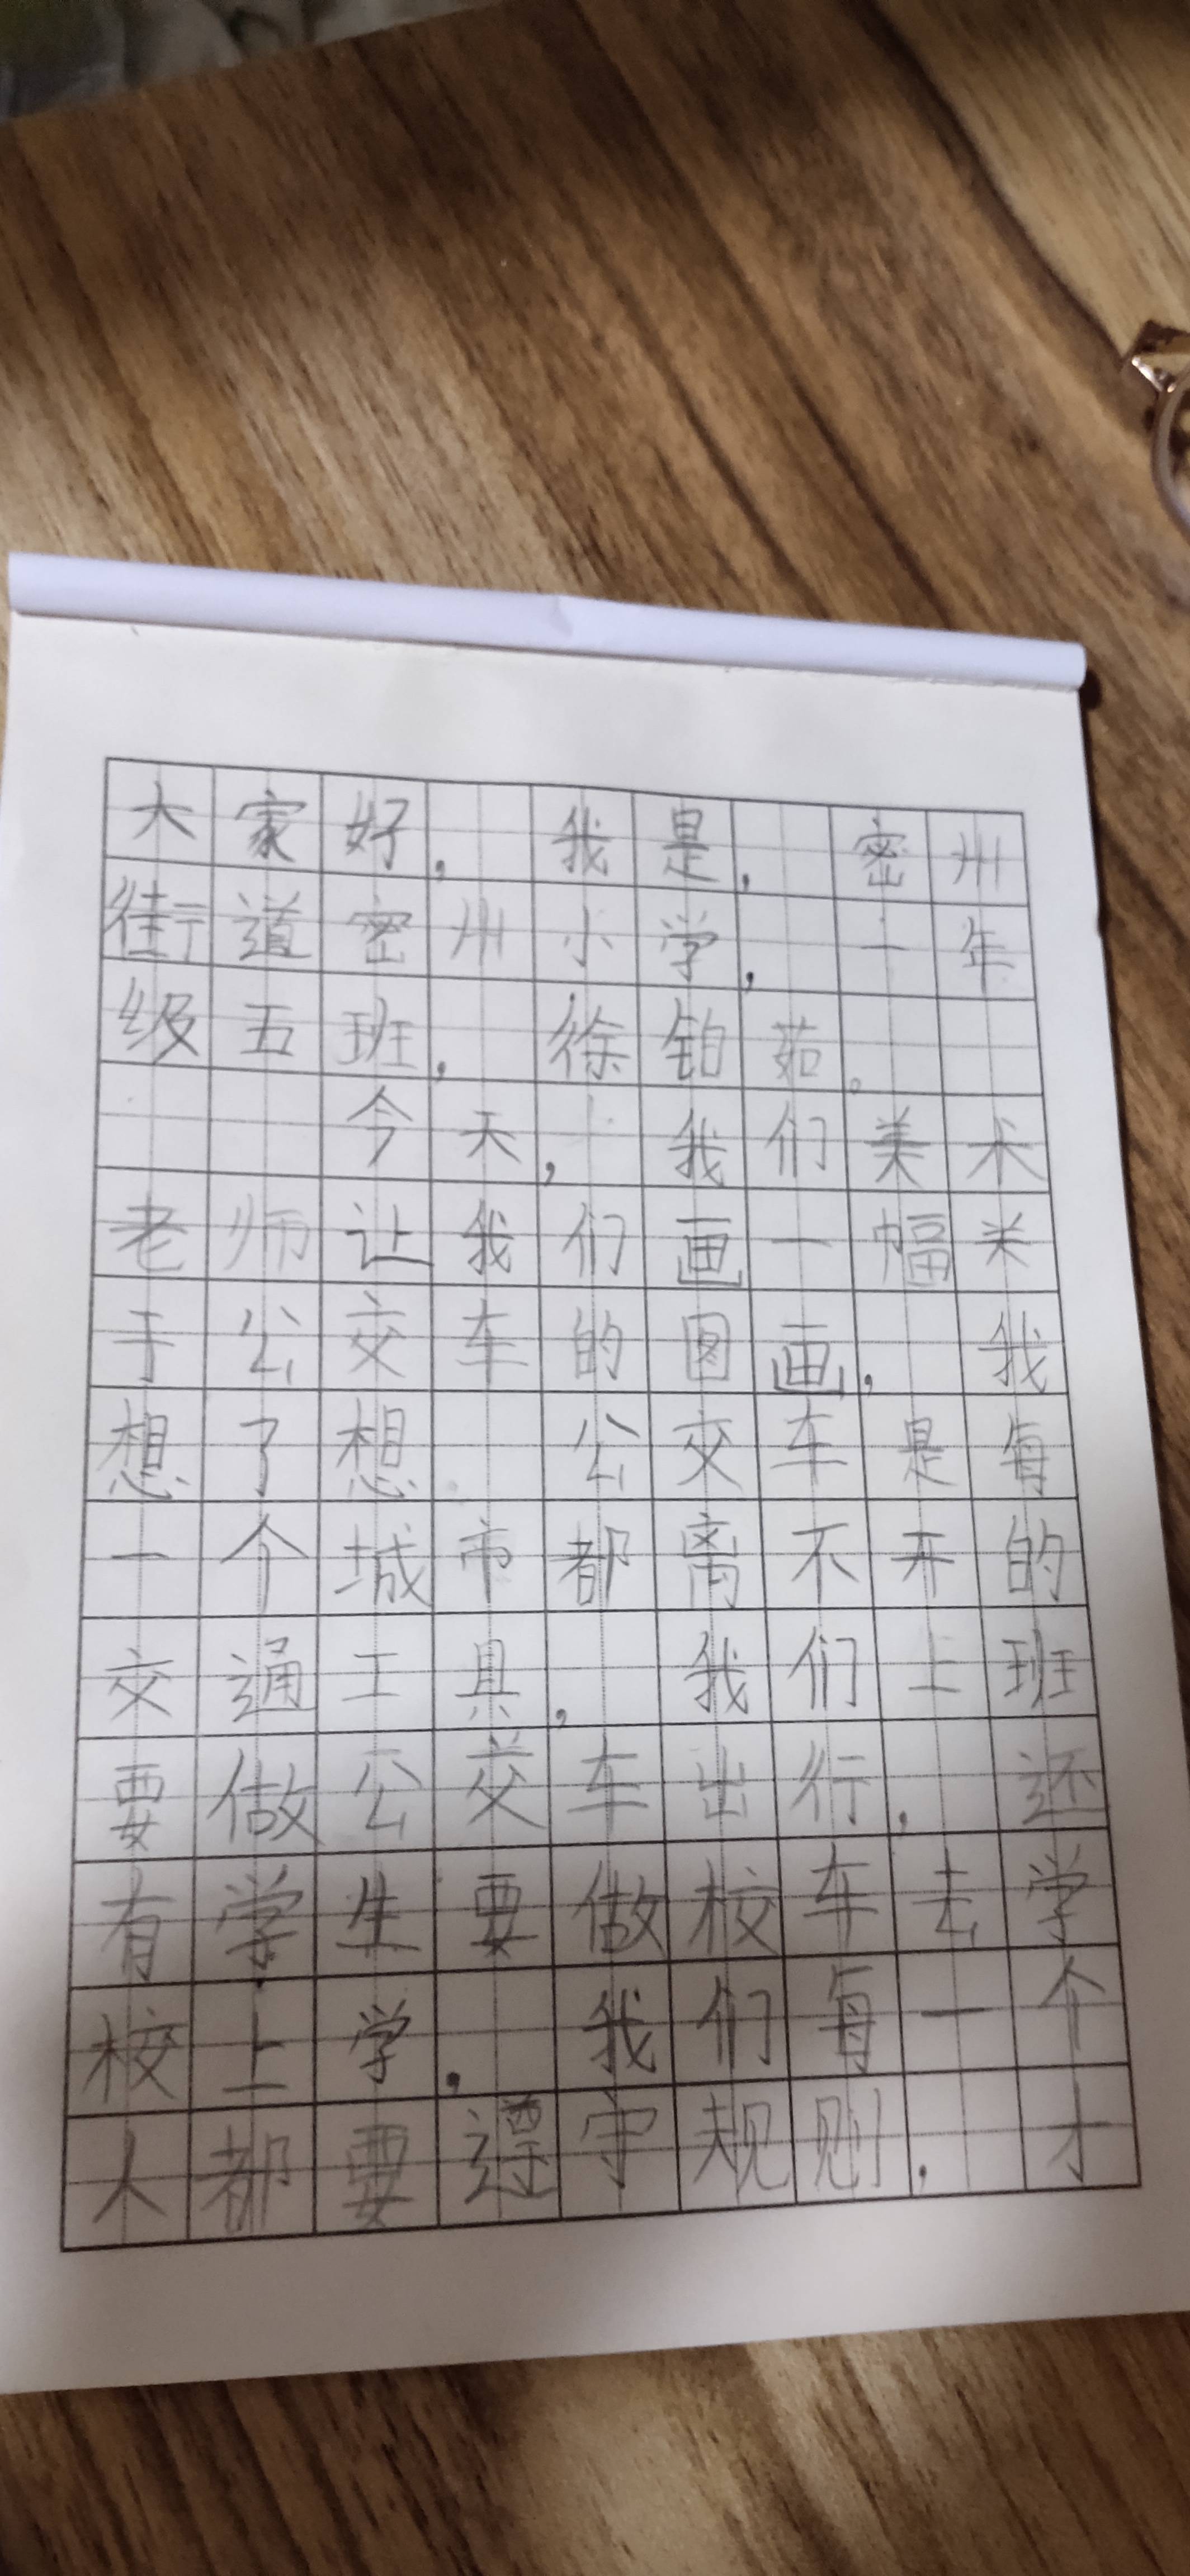 大家好，我是，密州
街道密州小学，一年
级五班，徐铂茹。
今天，我们美术
老师让我们画一幅关
于公交车的图画，我
想了想 公交车是每
一个城市都离不开的
交通工具，我们上班
要做公交车出行，还
有学生要做校车去学
校上学，我们每一个
人都要遵守规则，才